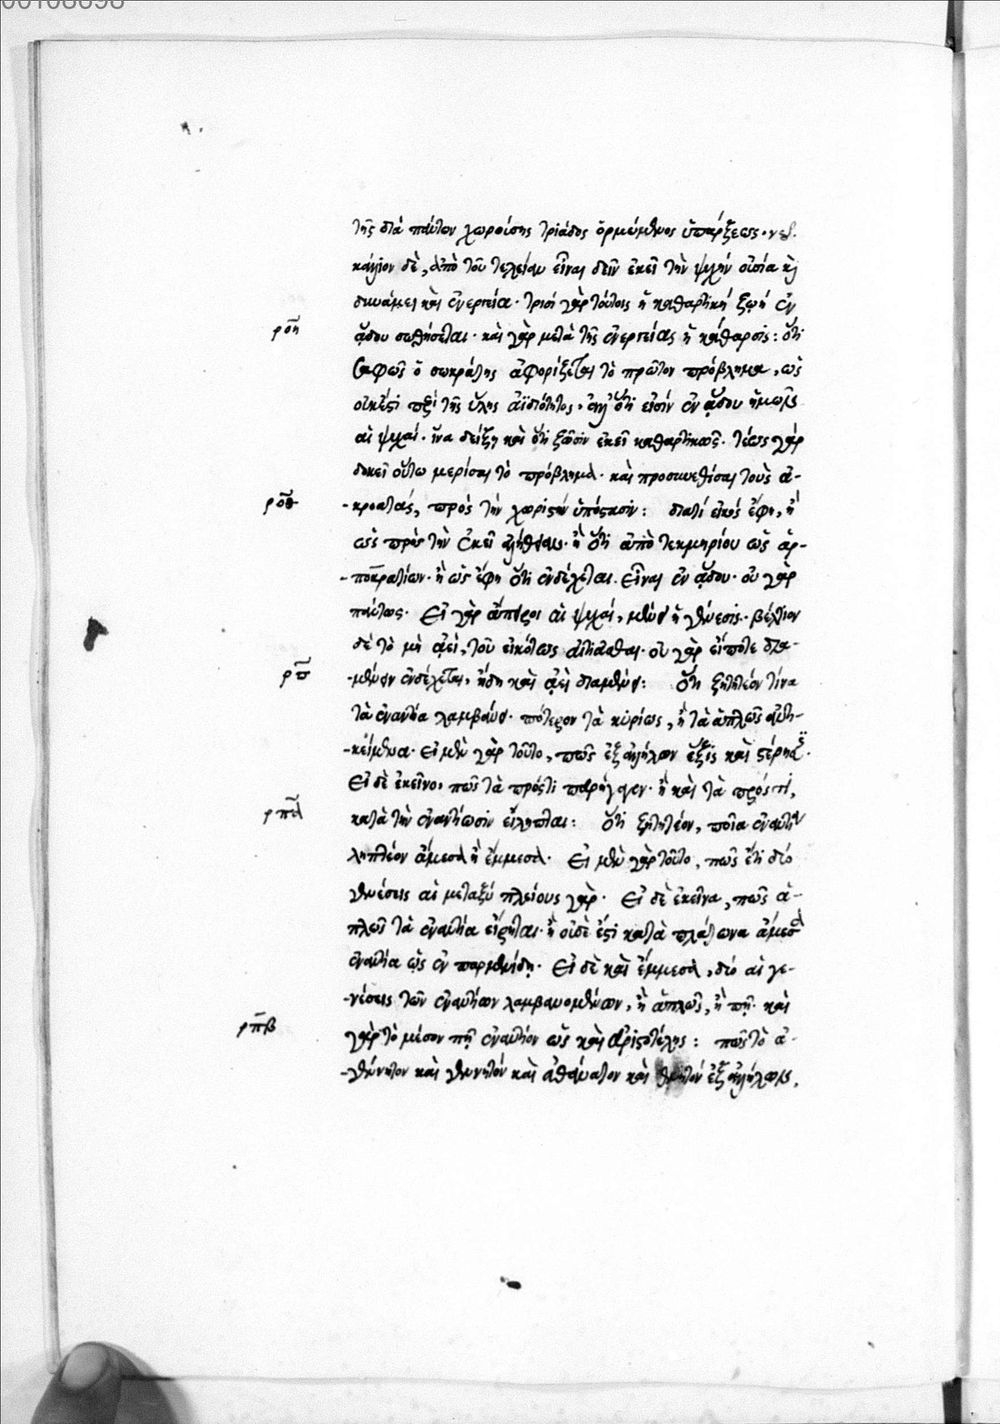 τῆς διὰ πάντων χωρούσης τριάδος ὁρμώμενος ὑπάρξεως.
κάλλιον δὲ, ἀπὸ τοῦ τελείου εἶναι δεῖν ἐκεῖ τὴν ψυχὴν οὐσία καὶ
δυνάμει καὶ ἐνεργεία· τρισὶ γὰρ τούτοις ἡ καθαρτικὴ ζωὴ ἐν
ροη
ᾅδου σωθήσεται· καὶ γὰρ μετὰ τῆς ἐνεργείας ἡ κάθαρσις: ὅτι
σαφῶς ὁ σωκράτης ἀφορίζεται τὸ πρῶτον πρόβλημα, ὡς
οὐκ ἔστι περὶ τῆς ὅλης ἀϊδιότητος, ἀλλ' ὅτι εἰσὶν ἐν ᾅδου ἡμῶν
αἱ ψυχαί· ἵνα δείξῃ καὶ ὅτι ζῶσιν ἐκεῖ καθαρτικῶς. τέως γὰρ
δοκεῖ οὕτω μερίσαι τὸ πρόβλημα· καὶ προσσυνεθίσαι τοὺς ἀ-
ροθ
-κροατὰς, πρὸς τὴν χωριστὴν ὑπόστασιν: διατί εἰκός ἔφη, ἢ
ὡς πρὸς τὴν ἐκεῖ ἀλήθειαν· ἢ ὅτι ἀπὸ τεκμηρίου ὡς ἁρ-
-ποκρατίων· ἢ ὡς ἔφη ὅτι ἐνδέχεται εἶναι ἐν ᾅδου· οὐ γὰρ
πάντως· εἰ γὰρ ἄπειροι αἱ ψυχαί, μένει ἡ γένεσις· βέλτιον
δὲ τὸ μὴ ἀεί, τοῦ εἰκότως αἰτιᾶσθαι· οὐ γὰρ εἴποτε δια-
ρπ
-μένειν ἐνδέχεται, ἤδη καὶ ἀεὶ διαμένει: ὅτι ζητητέον τίνα
τὰ ἐναντία λαμβάνει· πότερον τὰ κυρίως, ἢ τὰ ἁπλῶς ἀντι-
-κείμενα· εἰ μὲν γὰρ τοῦτο, πῶς ἐξ ἀλλήλων ἕξις καὶ στέρησις.
εἰ δὲ ἐκεῖνο, πῶς τὰ πρός τι παρήγαγεν· ἢ καὶ τὰ πρός τι,
ρπα
κατὰ τὴν ἐναντίωσιν εἴληπται: ὅτι ζητητέον, ποῖα ἐναντία
ληπτέον ἄμεσα ἢ ἔμμεσα· εἰ μὲν γὰρ τοῦτο, πῶς ἔτι δύο
γενέσεις αἱ μεταξὺ πλείους γὰρ· εἰ δὲ ἐκεῖνα, πῶς ἁ-
πλῶς τὰ ἐναντία εἴρηται· ἢ οὐδέ ἐστι κατὰ πλάτωνα ἄμεσα
ἐναντία ὡς ἐν παρμενίδῃ· εἰ δὲ καὶ ἔμμεσα, δύο αἱ γε-
-νέσεις τῶν ἐναντίων λαμβανομένων, ἢ ἁπλῶς, ἢ πῇ· καὶ
ρπβ
γὰρ τὸ μέσον πῇ ἐναντίον ὡς καὶ ἀριστοτέλης: πῶς τὸ ἀ-
-γένητον καὶ γενητὸν καὶ ἀθάνατον καὶ θνητὸν ἐξ ἀλλήλων,